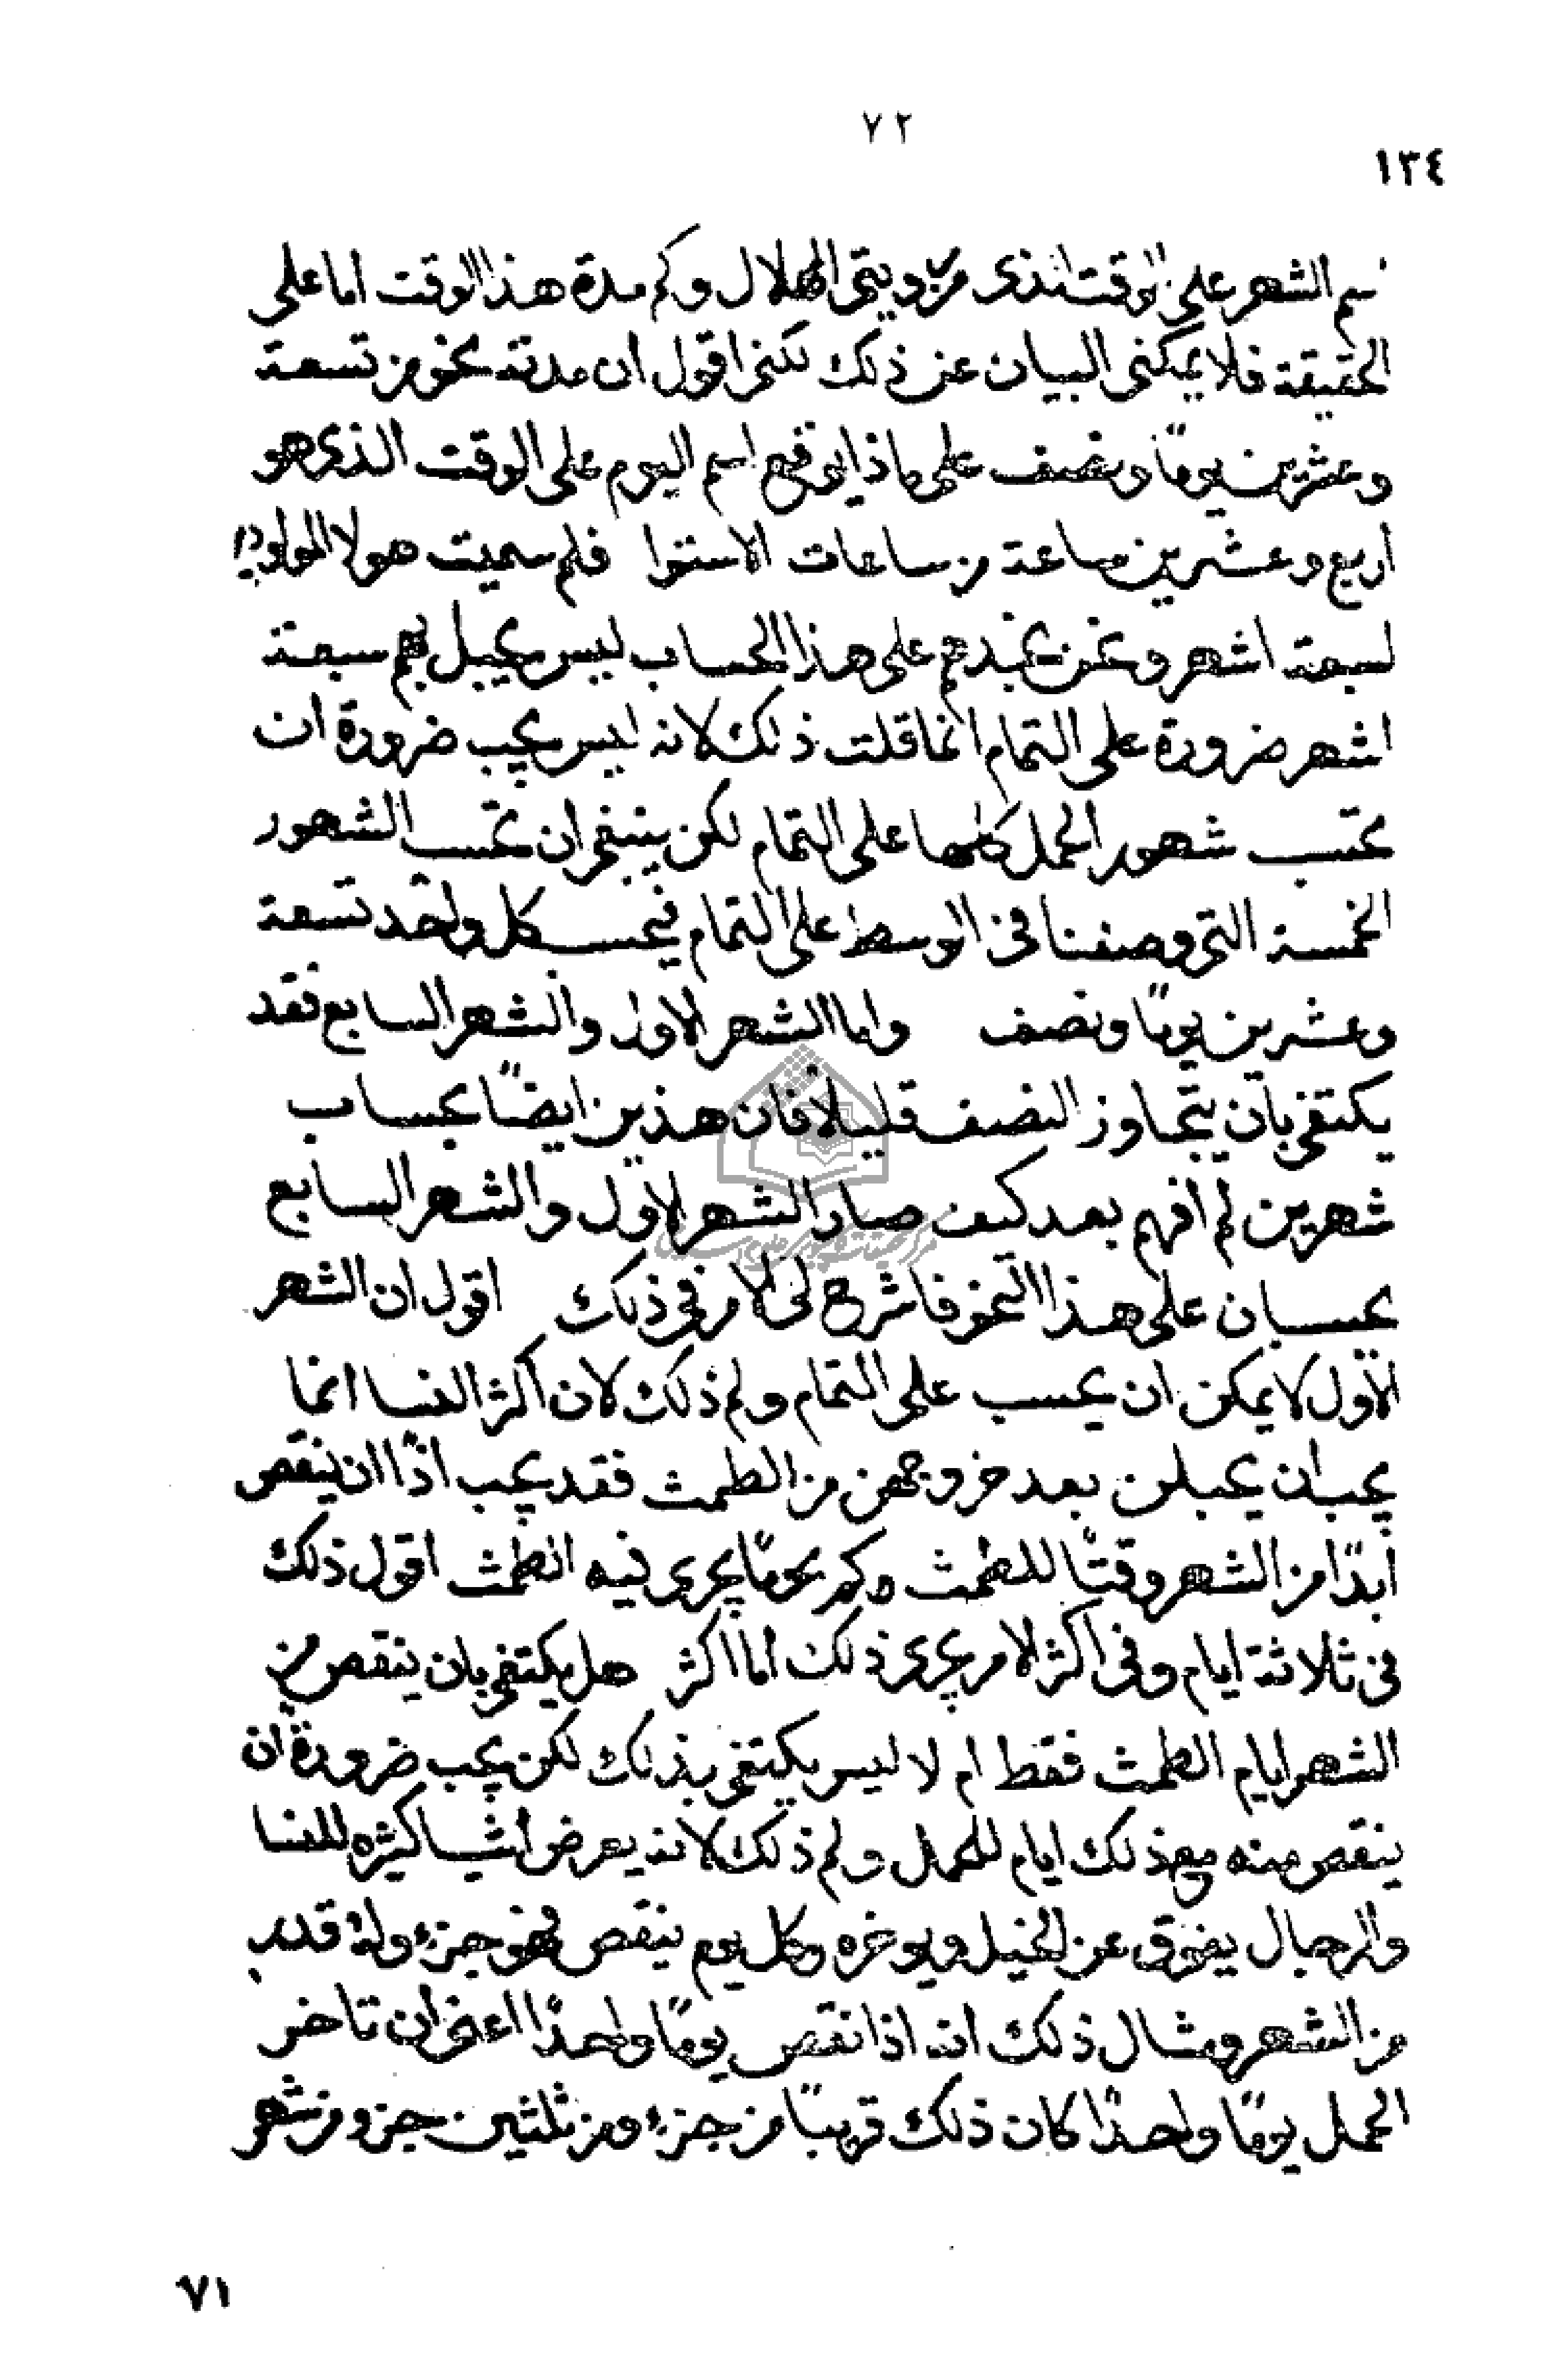 ٧٢
١٣٤
اسم الشهر على الوقت الذى من رويتى الهلال وكم مدة هذا الوقت اما على
الحقيقة فلا يمكننى البيان عن ذلك لكننى اقول ان مدته نحو من تسعة
وعشرين يومًا ونصف على ماذا يوقع اسم اليوم على الوقت الذى هو
اربع وعشرين ساعة من ساعات الاستوا فلم سميت هولا المولودين
لسبعة اشهر ونحن نجدهم على هذا الحساب ليس يحبل بهم سبعة
اشهر ضرورة على التمام انما قلت ذلك لانه ليس يجب ضرورة ان
تحتسب شهور الحمل كلها على التمام لكن ينبغى ان تحسب الشهور
الخمسة التى وصفنا فى الوسط على التمام فيحسب كل واحد تسعة
وعشرين يومًا ونصف واما الشهر الاول والشهر السابع فقد
يكتفى بان يتجاوز النصف قليلا فان هذين ايضًا بحساب
شهرين لم افهم بعد كيف صار الشهر الاول والشهر السابع
يحسبان على هذا النحو فاشرح لى الامر فى ذلك اقول ان الشهر
الاول لا يمكن ان يحسب على التمام ولم ذلك لان اكثر النسا انما
يجب ان يحبلن بعد خروجهن من الطمث فقد يجب اذًا ان ينقص
ابدًا من الشهر وقتًا للطمث وكم يومًا يجرى فيه الطمث اقول ذلك
فى ثلاثة ايام وفى اكثر الامر يجرى ذلك اما اكثر هل يكتفى بان ينقص من
الشهر ايام الطمث فقط ام لا ليس يكتفى بذلك لكن يجب ضرورة ان
ينقص منه مع ذلك ايام للحمل ولم ذلك لانه يعرض اشيا كثيره للنسا
والرجال يعوق عن الحبل ويوخره وكل يوم ينقص فهو جزء وله قدر
من الشهر ومثال ذلك انه اذا نقص يومًا واحدًا اعنى ان تاخر
الحمل يومًا واحدًا كان ذلك قريبًا من جزء ومن ثلثين جزو من شهر
٧١